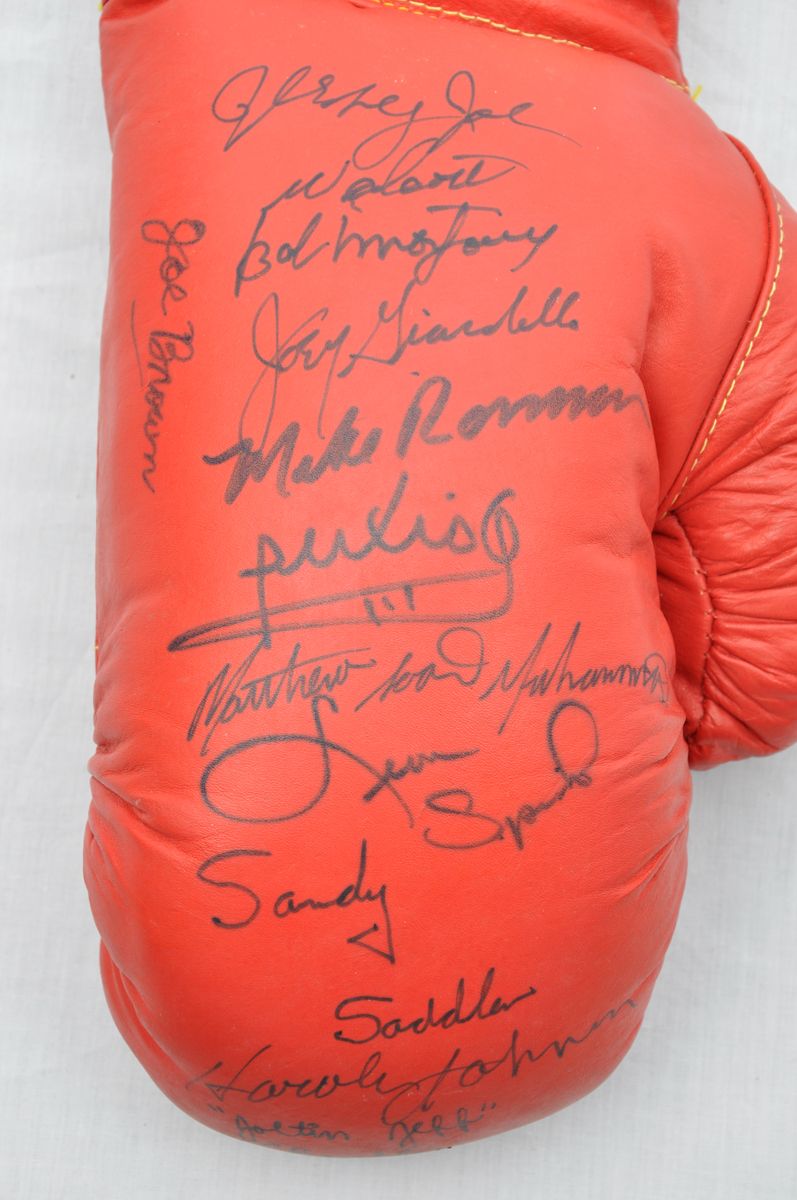 Jersey Joe
Walcott
Bob Montgomery
Joey Giardello
Joe Brown
Mike Rossman
Matthew Saad Muhammad
Leon
Spinks
Sandy
Saddler
Harold Johnson
"Joltin Jeff"